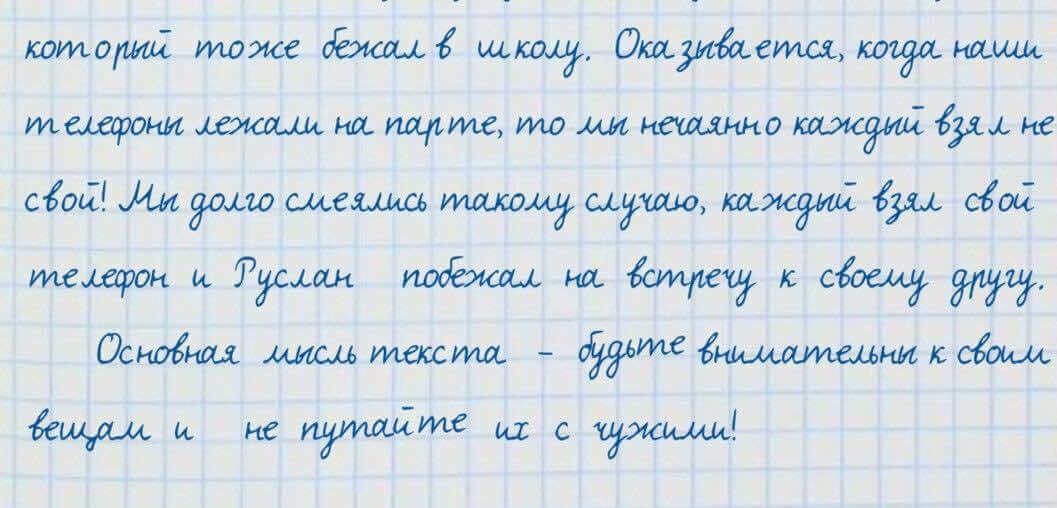 который тоже бежал в школу. Оказывается, когда наши
телефоны лежали на парте, то мы нечаянно каждый взял не
свой! Мы долго смеялись такому случаю, каждый взял свой
телефон и Руслан побежал на встречу к своему другу.
Основная мысль текста - будьте внимательны к своим
вещам и не путайте их с чужими!